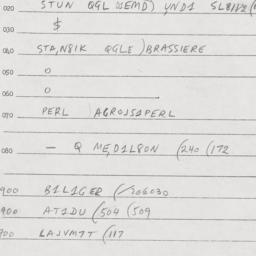 020 STUN QGL
030 $
040 STA,N8IK QGLE)BRASSIERE
050 0
060 0
070 PERL AGROJS1PERL
080 — Q MED1L8ON (240 (172
900 B1L1GER (/206030
900 AT1DU (504 (509
900 LAJVM77 (117